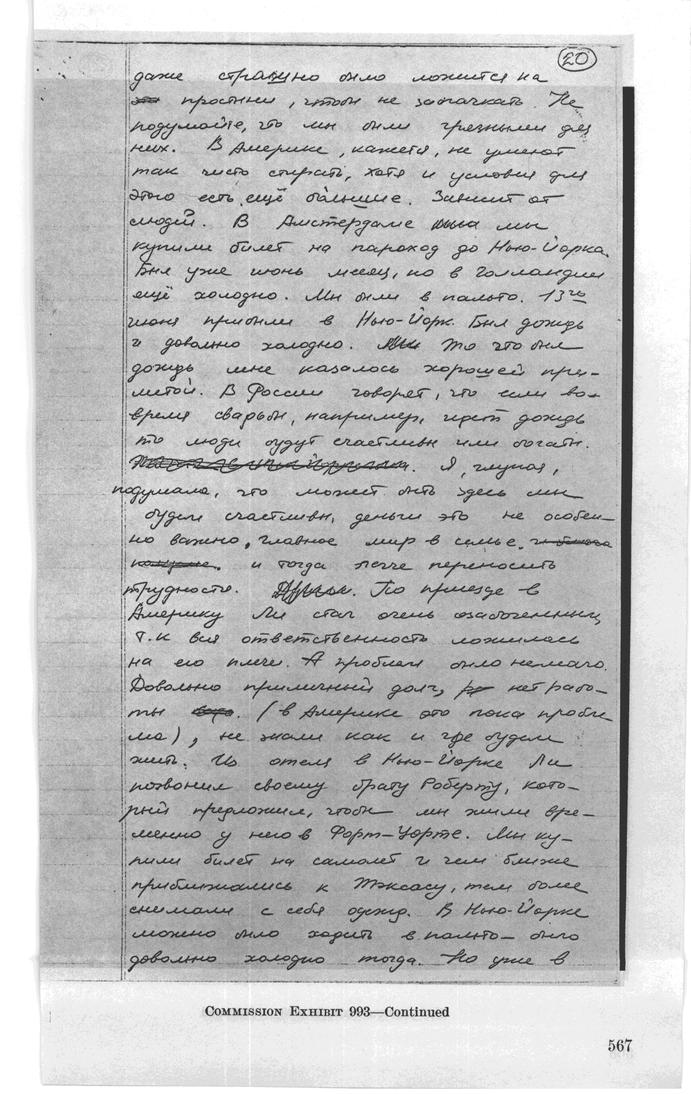 20
даже страшно было ложится на
простыни, чтобы не запачкать. Не
подумайте, что мы были грязными для
них. В Америке, кажется, не умеют
так чисто стирать, хотя и условия для
этого есть ещё большие. Зависит от
людей. В Амстердаме мы
купили билет на пароход до Нью-Йорка.
Был уже июнь месяц, но в Голландии
ещё холодно. Мы были в пальто. 13го
июня прибыли в Нью-Йорк. Был дождь
и довольно холодно. То что был
дождь мне казалось хорошей при-
метой. В России говорят, что если во-
время свадьбы, например, идет дождь
то люди будут счастливы или богаты.
Я, глупая,
подумала, что может быть здесь мы
будем счастливы, деньги это не особен-
но важно, главное мир в семье.
и тогда легче переносить
трудности. По приезде в
Америку Ли стал очень озабоченный,
т.к вся ответственность ложилась
на его плечи. А проблем было немало.
Довольно приличный долг, нет рабо-
ты. (в Америке это пока пробле
ма), не знали как и где будем
жить. Из отеля в Нью-Йорке Ли
позвонил своему брату Роберту, кото-
рый предложил, чтобы мы жили вре-
менно у него в Форт-Уорте. Мы ку-
пили билет на самолет и чем ближе
приближались к Тэксасу, тем более
снимали с себя одежд. В Нью-Йорке
можно было ходить в пальто – было
довольно холодно тогда. Но уже в
COMMISSION EXHIBIT 993—Continued
567